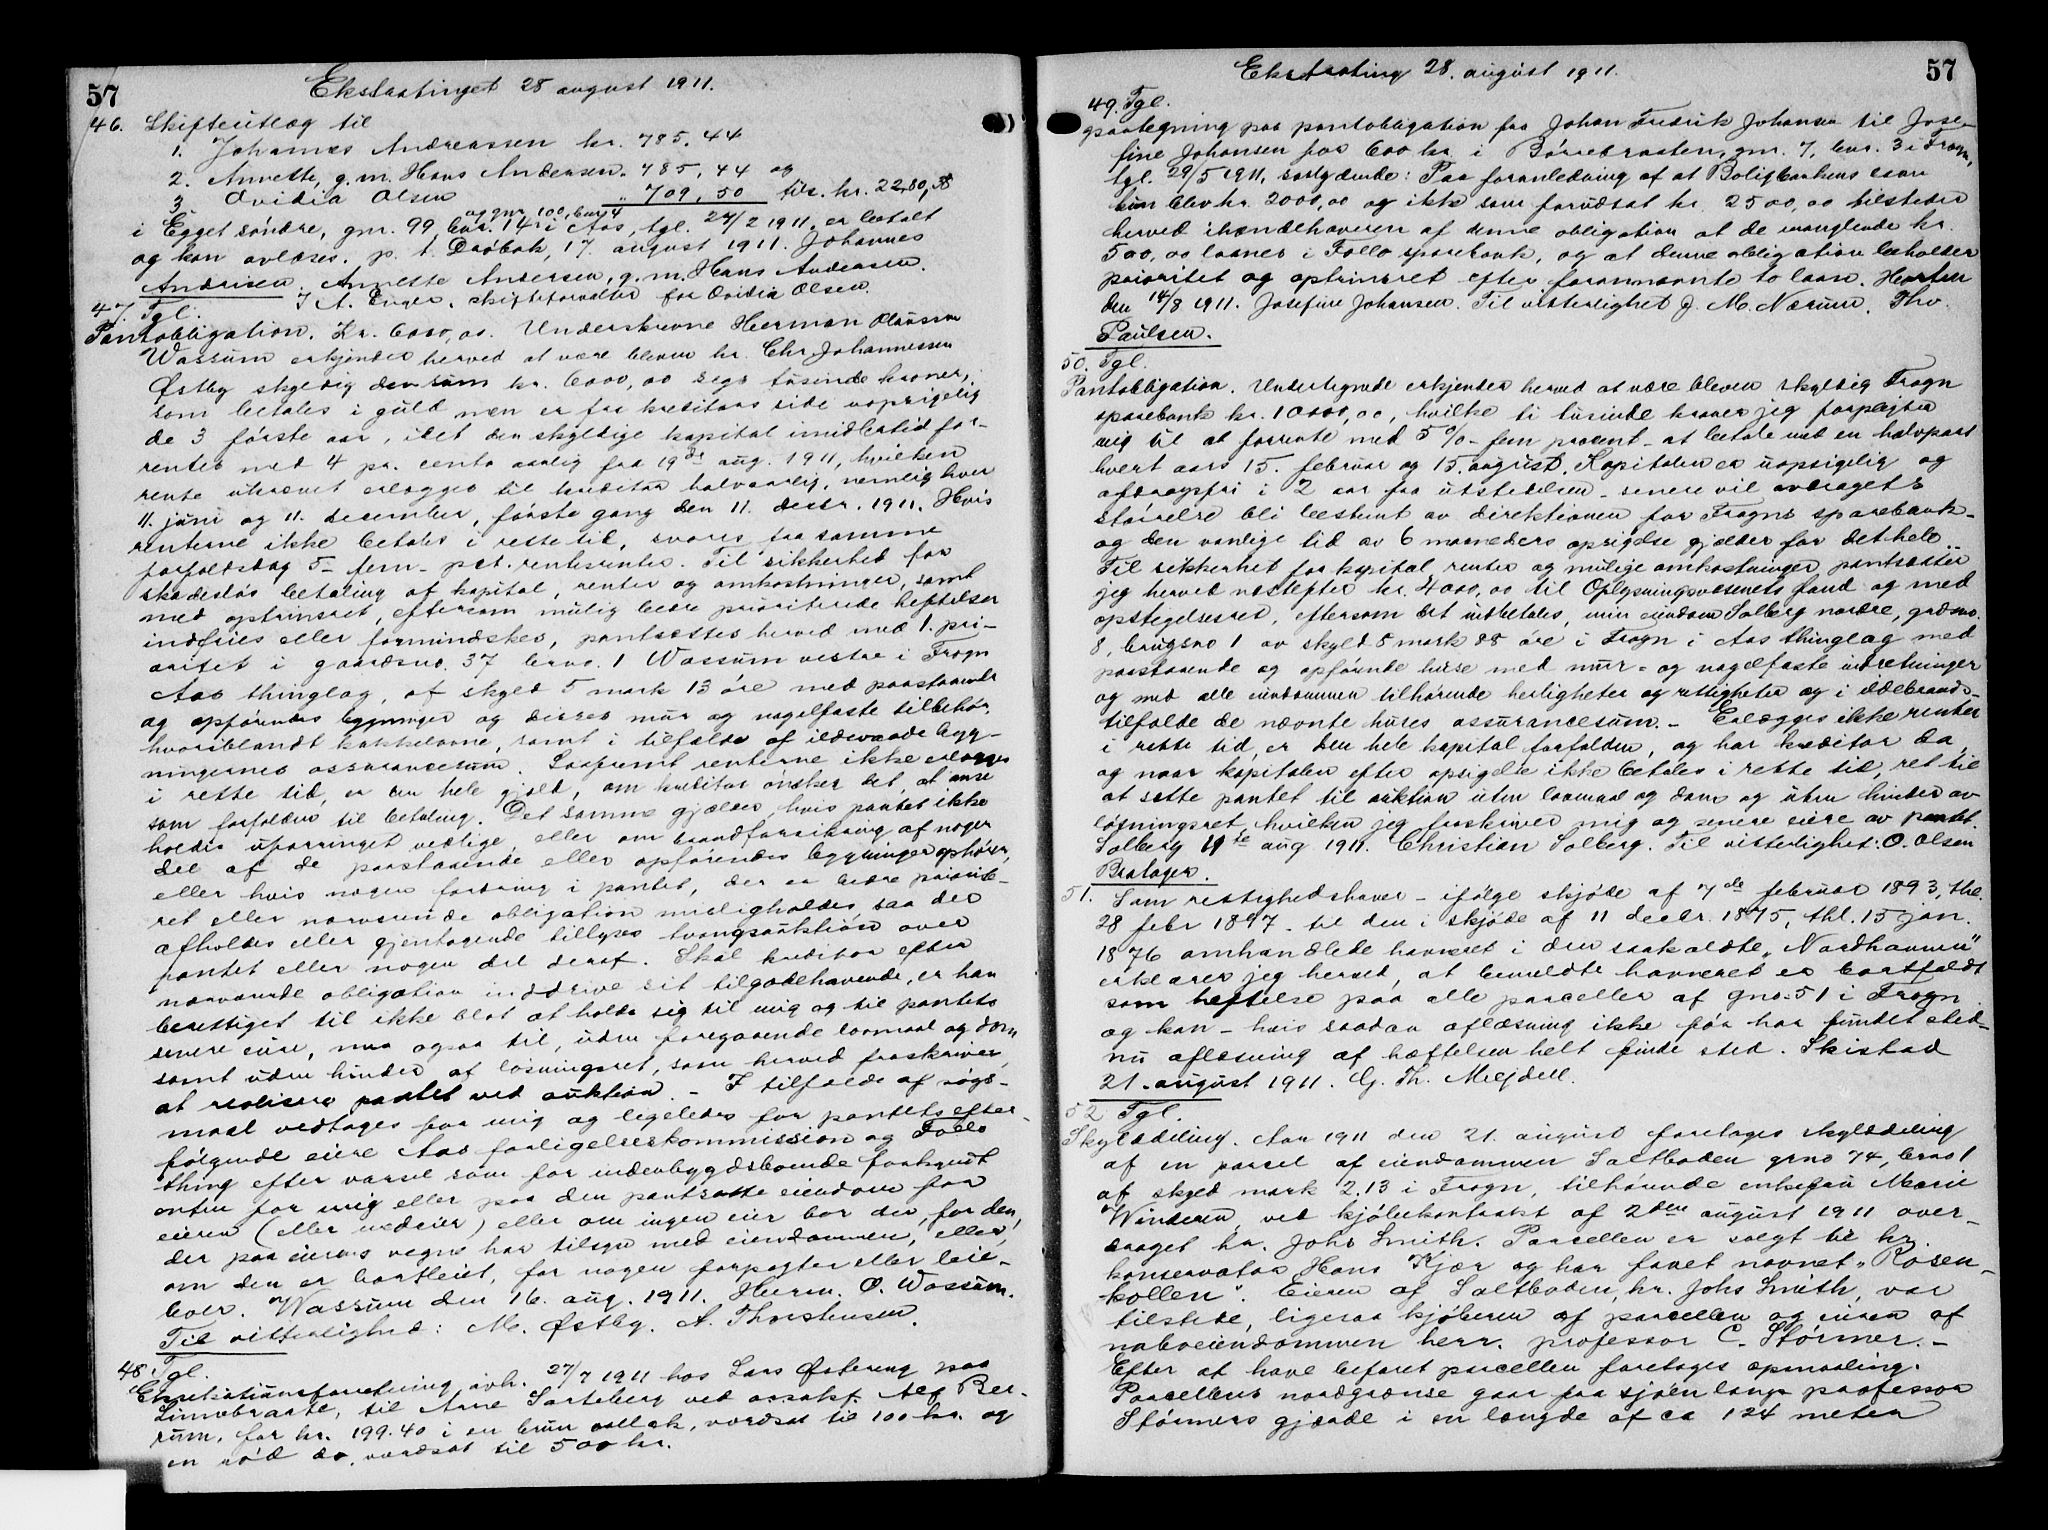 57
Ekstratinget 28 august 1911.
46. Skifteutlæg til
1. Johannes Andreassen kr. 785,44
2. Annette, g. m. Hans Andersen. 785,44 og
3 Ovidia Olsen " 709,50 tils. kr. 2280,38
og gnr. 100, bnr. 4
i Egget söndre, gnr. 99, bnr. 14 i Aas, tgl. 27/2 1911, er betalt
og kan avlæses. p. t. Dröbak, 17. august 1911. Johannes
Andrisen. Annette Andersen, g. m. Hans Andersen.
skifteforvalter for Ovidia Olsen.
47. Tgl.
Pantobligation. Kr. 6000,00. Underskrevne Herman Olausen
Wassum erkjender herved at være bleven hr. Chr. Johannessen
Østby skyldig den sum kr. 6000,00 seks tusinde kroner,
som betales i guld men er fra kreditors side uopsigelig
de 3 förste aar, idet den skyldige kapital imidlertid for-
rentes med 4 pr. cento aarlig fra 19de aug. 1911, hvilken
rente ukrævet erlægges til kreditor halvaarlig, nemlig hver
11. juni og 11. december, förste gang den 11. decbr. 1911. Hvis
renterne ikke betales i rette tid, svares fra samme
forfaldsdag 5 – fem – pct. rentesrente. Til sikkerhed for
skadeslös betaling af kapital, renter og omkostninger, samt
med optrinsret, eftersom mulig bedre prioriterede heftelser
indfries eller formindskes, pantsættes herved med 1. pri-
oritet i gaardsno. 37 brno. 1 Wassum vestre i Frogn
Aas thinglag, af skyld 5 mark 13 öre med paastaaende
og opförendes bygninger og disses mur og nagelfaste tilbehör,
hvoriblandt kakkelovne, samt i tilfælde af ildsvaade byg-
ningernes assurancesum. Saafremt renterne ikke erlægges
i rette tid, er den hele gjæld, om kreditor önsker det, at anse
som forfalden til betaling. Det samme gjælder, hvis pantet ikke
holdes uforringet vedlige, eller om brandforsikring af nogen
del af de paastaaende eller opförendes bygninger ophörer,
eller hvis nogen fordring i pantet, der er bedre priorite-
ret eller nærværende obligation misligholdes saa der
afholdes eller gjentagende tillyses tvangsauktion over
pantet eller nogen del deraf. Skal kreditor efter
nærværende obligation inddrive sit tilgodehavende, er han
berettiget til ikke blot at holde sig til mig og til pantets
senere eiere, men ogsaa til, uden foregaaende lovmaal og dom
samt uden hinder af lösningsret, som herved fraskrives
at realisere pantet ved auktion. – I tilfælde af søgs-
maal vedtages for mig og ligeledes for pantets efter-
følgende eiere Aas forligelseskommission og Follo
thing efter varsel som for indenbygdsboende forkyndt
enten for mig eller paa den pantsatte eiendom for
eieren (eller medeier) eller om ingen eier bor der, for den,
der paa eierens vegne har tilsyn med eiendommen, eller,
om den er bortleiet, for nogen forpagter eller leie-
boer. Wassum den 16. aug. 1911. Herm. O. Wassum.
Til vitterlighed: M. Østby. A. Thorstensen.
48. Tgl.
Eksekutionsforretning avh. 27/7 1911 hos Lars Østereng paa
Linnebraate, til Arne Sørteberg ved
rum, for kr. 199.40 i en brun vallak, værdsat til 100 kr. og
en röd do. værdsat til 500 kr.
57
Ekstrating 28. august 1911.
49. Tgl.
paategning paa pantobligation fra Johan Fredrik Johansen til Jose-
fine Johansen for 600 kr. i Börrebraaten, gnr. 7, bnr. 3 i Frogn,
tgl. 29/5 1911, saalydende: Paa foranledning af at Boligbankens laan
kun blev kr. 2000,00 og ikke som forudsat kr. 2500,00 tilsteder
herved ihændehaveren af denne obligation at de manglende kr.
500,00 laanes i Follo sparebank, og at denne obligation beholder
prioritet og optrinsret efter forannævnte to laan. Horten
den 14/8 1911. Josefine Johansen. Til vitterlighet J. M. Nærum. Thv.
Paulsen.
50. Tgl.
Pantobligation. Undertegnede erkjender herved at være bleven skyldig Frogn
sparebank kr. 10000,00, hvilke ti tusinde kroner jeg forpligter
mig til at forrente med 5 % – fem procent – at betale med en halvpart
hvert aars 15. februar og 15. august. Kapitalen er uopsigelig og
afdragsfri i 2 aar fra utstedelsen – senere vil avdragets
störrelse bli bestemt av direktionen for Frogns sparebank –
og den vanlige tid av 6 maaneders opsigelse gjælder for det hele.
Til sikkerhet for kapital renter og mulige omkostninger pantsætter
jeg herved næstefter kr. 4000,00 til Oplysningsvæsenets fond og med
opstigelsesret, eftersom det utbetales, min eiendom Solberg nordre, gaardsno.
8, brugsno 1 av skyld 5 mark 88 öre i Frogn i Aas thinglag med
paastaaende og opförende huse med mur- og nagelfaste indretninger
og med alle eiendommen tilhörende herligheter og rettigheter og i ildebrands-
tilfælde de nævnte huses assurancesum. – Erlægges ikke renter
i rette tid, er den hele kapital forfalden, og har kreditor da,
og naar kapitalen efter opsigelse ikke betales i rette tid, ret til
at sætte pantet til auktion uten lovmaal og dom og uten hinder av
løsningsret hvilken jeg fraskriver mig og senere eiere av pantet.
Solberg 19de aug 1911. Christian Solberg. Til vitterlighet: O. Olsen
Bratager.
51. Som rettighedshaver – ifölge skjöde af 7de februar 1893, thl.
28 febr 1897 – til den i skjöde af 11 decbr. 1875, thl. 15 jan.
1876 omhandlede havneret i den saakaldte „Nordhavnen"
erklærer jeg herved, at bemeldte havneret er bortfaldt
som heftelse paa alle parceller af gno. 51 i Frogn
og kan – hvis saadan aflæsning ikke för har fundet sted –
nu aflæsning af hæftelsen helt finde sted. Skistad
21. august 1911. G. Th. Mejdell.
52 Tgl.
Skylddeling. Aar 1911 den 21. august foretages skylddeling
af en parcel af eiendommen Saltboden grno 74, brno 1
af skyld mark 2.13 i Frogn, tilhörende enkefru Marie
Winderen, ved kjöbekontrakt af 2den august 1911 over-
draget hr. Johs Smith. Parcellen er solgt til hr.
konservator Hans Kjær og har faaet navnet „Rosen-
kollen". Eieren af Saltboden, hr. Johs Smith, var
tilstede, ligesaa kjöberen af parcellen og eieren af
naboeiendommen herr. professor C. Störmer. –
Efter at have befaret parcellen foretages opmaaling.
Parcellens nordgrænse gaar fra sjöen langs professor
Störmers gjærde i en længde af ca 124 meter